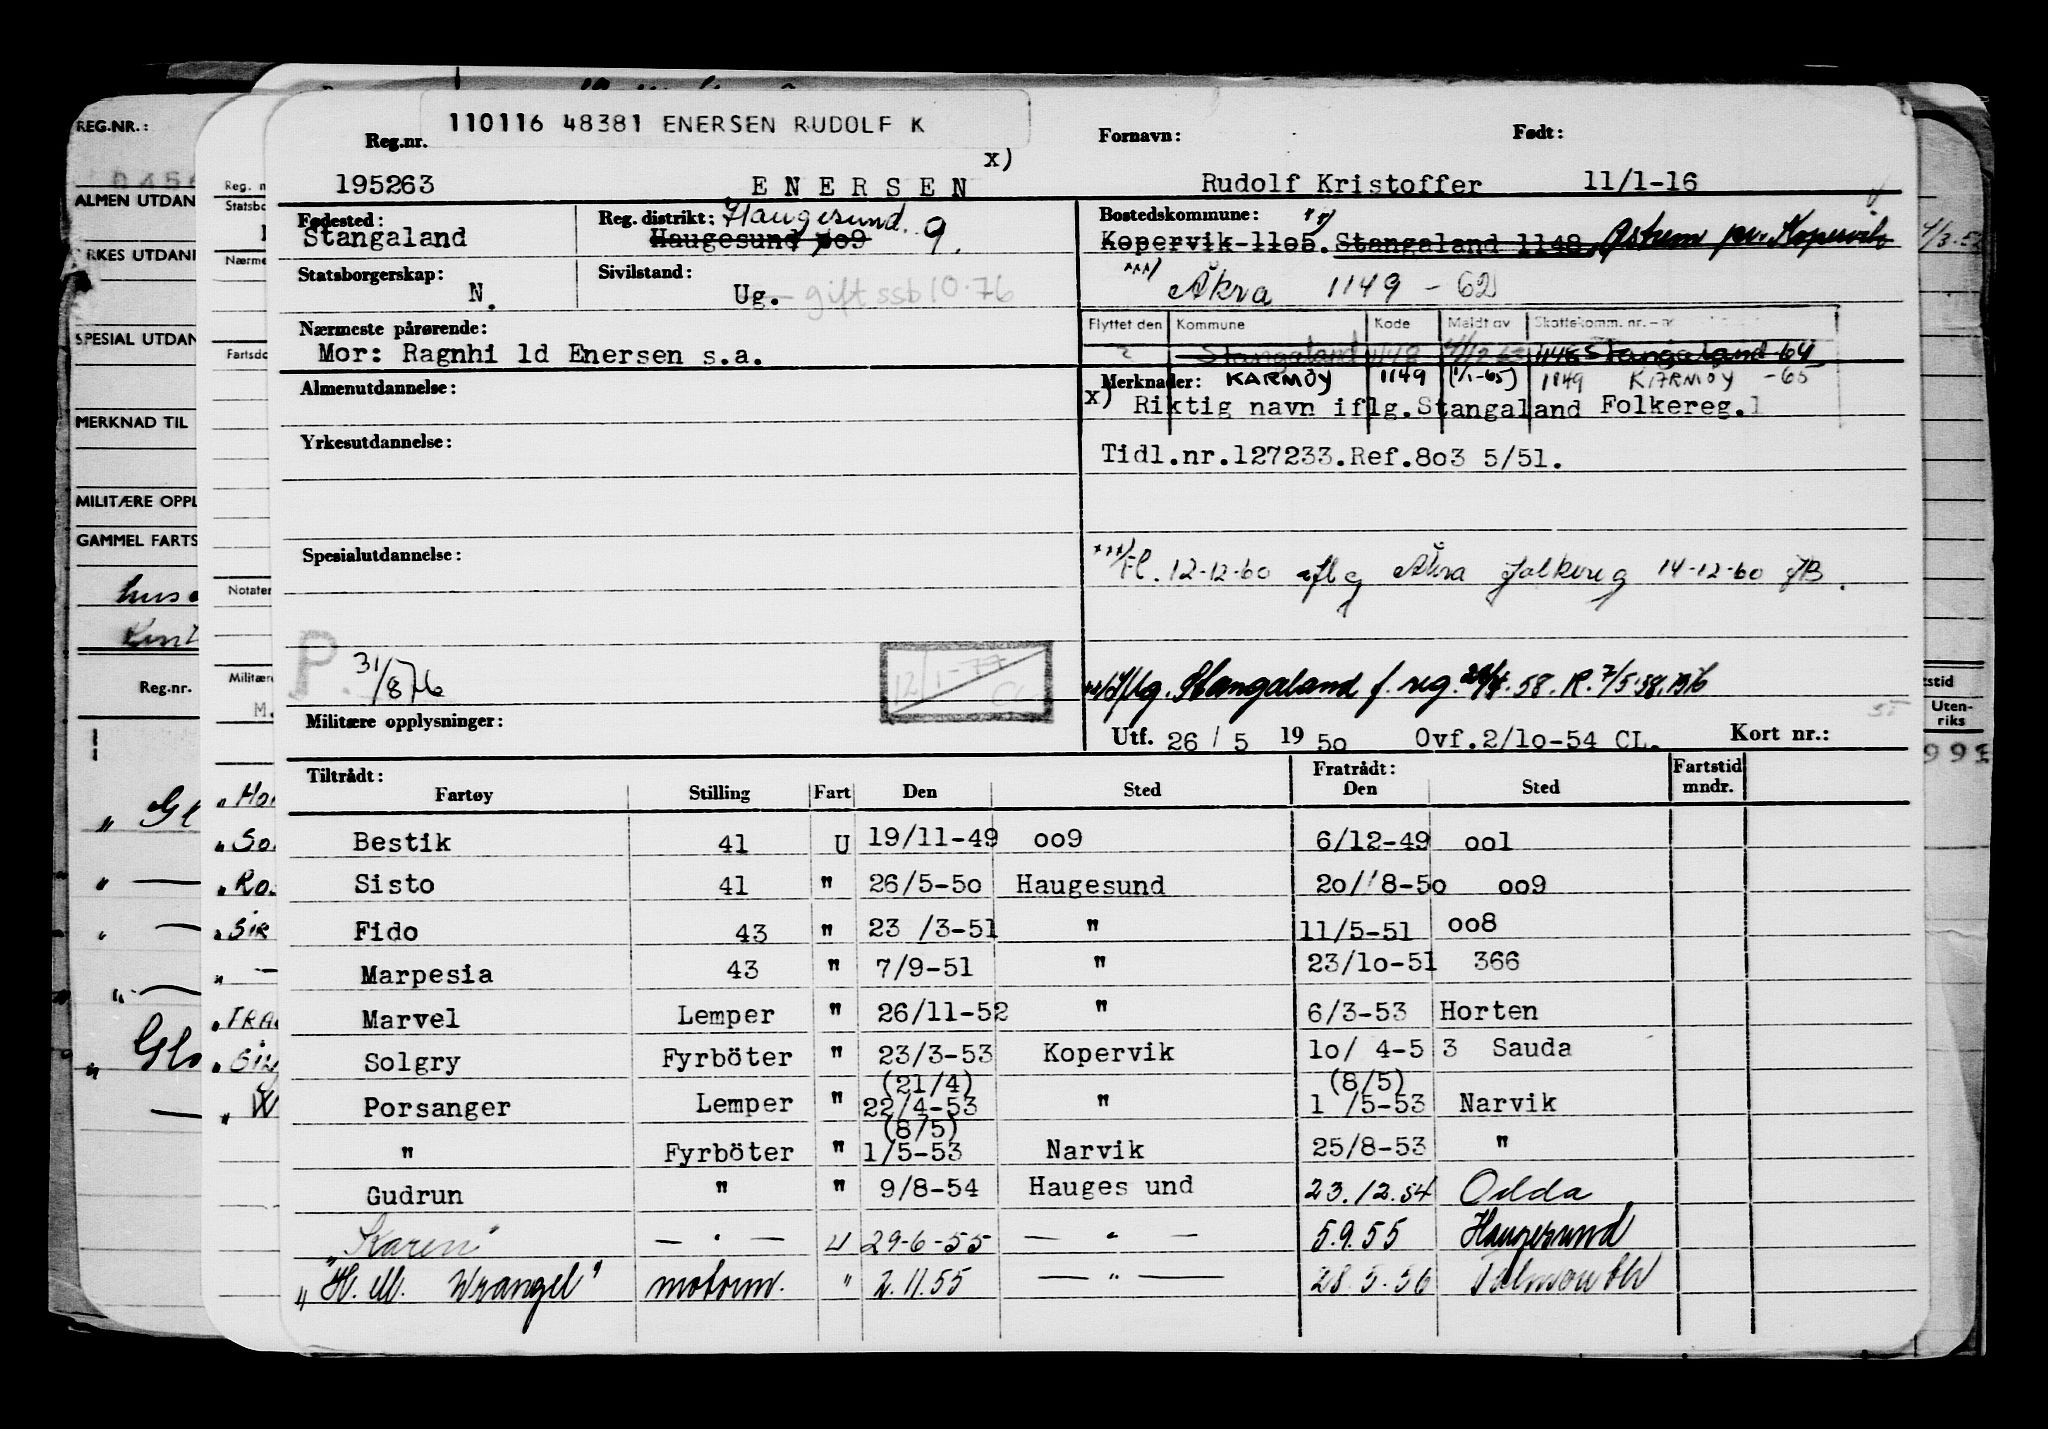 REG.NR.:
ALMEN UTDAN
RKES UTDANI
SPESIAL UTDAN
MERKNAD TIL
MILITÆRE OPPL
GAMMEL FARTS
Reg.nr.
Reg. n
Statsbo
Nærme
Fartsdo
Notater
Militære
M.
110116 48381 ENERSEN RUDOLF K
Reg.nr. Fornavn: Født:
x)
195263 ENERSEN Rudolf Kristoffer 11/1-16
Fødested: Reg. distrikt: Haugesund. 9. Bostedskommune:
Stangaland Haugesund oo9 Kopervik 11o5. Stangaland 1148, pr. Kopervik
Statsborgerskap: N. Sivilstand: Ug. - gift ssb 10.76 Åkra 1149 - 62
Nærmeste pårørende: Flyttet den Kommune Kode Meldt av Skattekomm. nr.
Mor: Ragnhi ld Enersen s.a. Stangaland 1148 Stangaland 64
Almenutdannelse: Merknader: KARMØY 1149 (1/1-65) 1149 KARMØY -65
x) Riktig navn iflg.Stangaland Folkereg.
Yrkesutdannelse: Tidl.nr.127233.Ref.8o3 5/51.
Spesialutdannelse: Fl. 12-12-60 iflg Åkra folkereg 14-12-60
P. 31/8 76 12/1-77
Stangaland f. reg. 58. R. 7/5.58.
Militære opplysninger: Utf. 26 / 5 19 5o Ovf.2/1o-54 CL. Kort nr.:
Tiltrådt: Fratrådt: Fartstid
Fartøy Stilling Fart Den Sted Den Sted mndr.
Bestik 41 U 19/11-49 oo9 6/12-49 oo1
Sisto 41 " 26/5-5o Haugesund 2o/ 8-5o oo9
Fido 43 " 23 /3-51 " 11/5-51 oo8
Marpesia 43 " 7/9-51 " 23/1o-51 366
Marvel Lemper " 26/11-52 " 6/3-53 Horten
Solgry Fyrböter " 23/3-53 Kopervik 1o/ 4-5 3 Sauda
(21/4) (8/5)
Porsanger Lemper " 22/4-53 " 1 /5-53 Narvik
(8/5)
" Fyrböter " 1/5-53 Narvik 25/8-53 "
Gudrun " " 9/8-54 Hauges und 23.12.54 Odda
"Karen" — " — U 29-6-55 — " — 5.9.55 Haugesund
"H. M. Wrangel" motorm. " 2.11.55 — " — 28.5.56
tstid
Uten-
riks